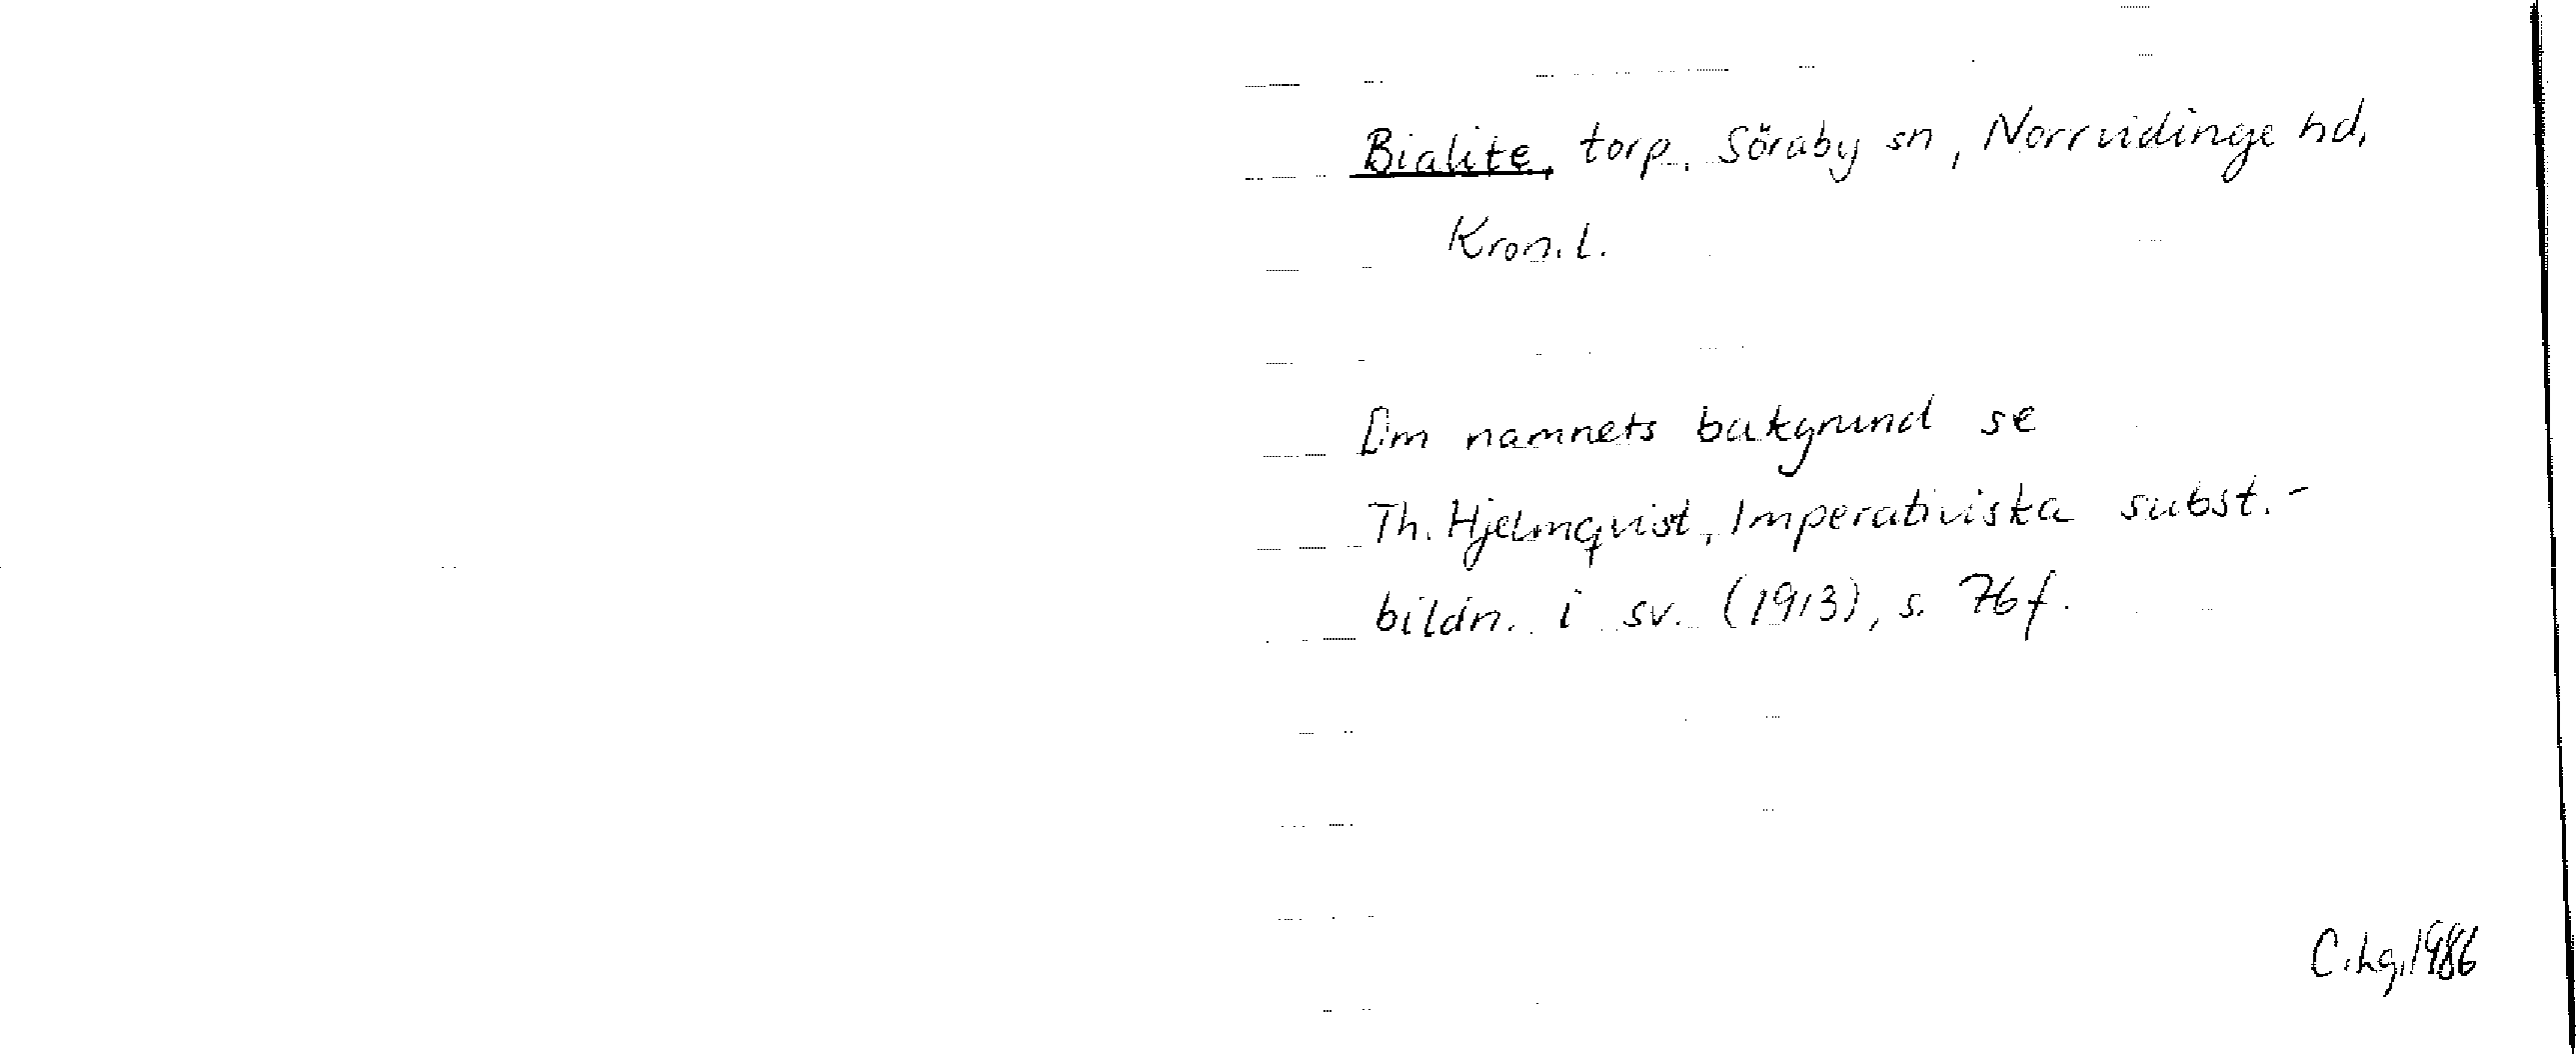 Bialite, torp, Söraby sn, Norrvidinge hd,
Kron.l.
Om namnets bakgrund se
Th. Hjelmqvist, Imperativiska subst.-
bildn. i sv. (1913), s. 76 f.
C.Lg, 1986